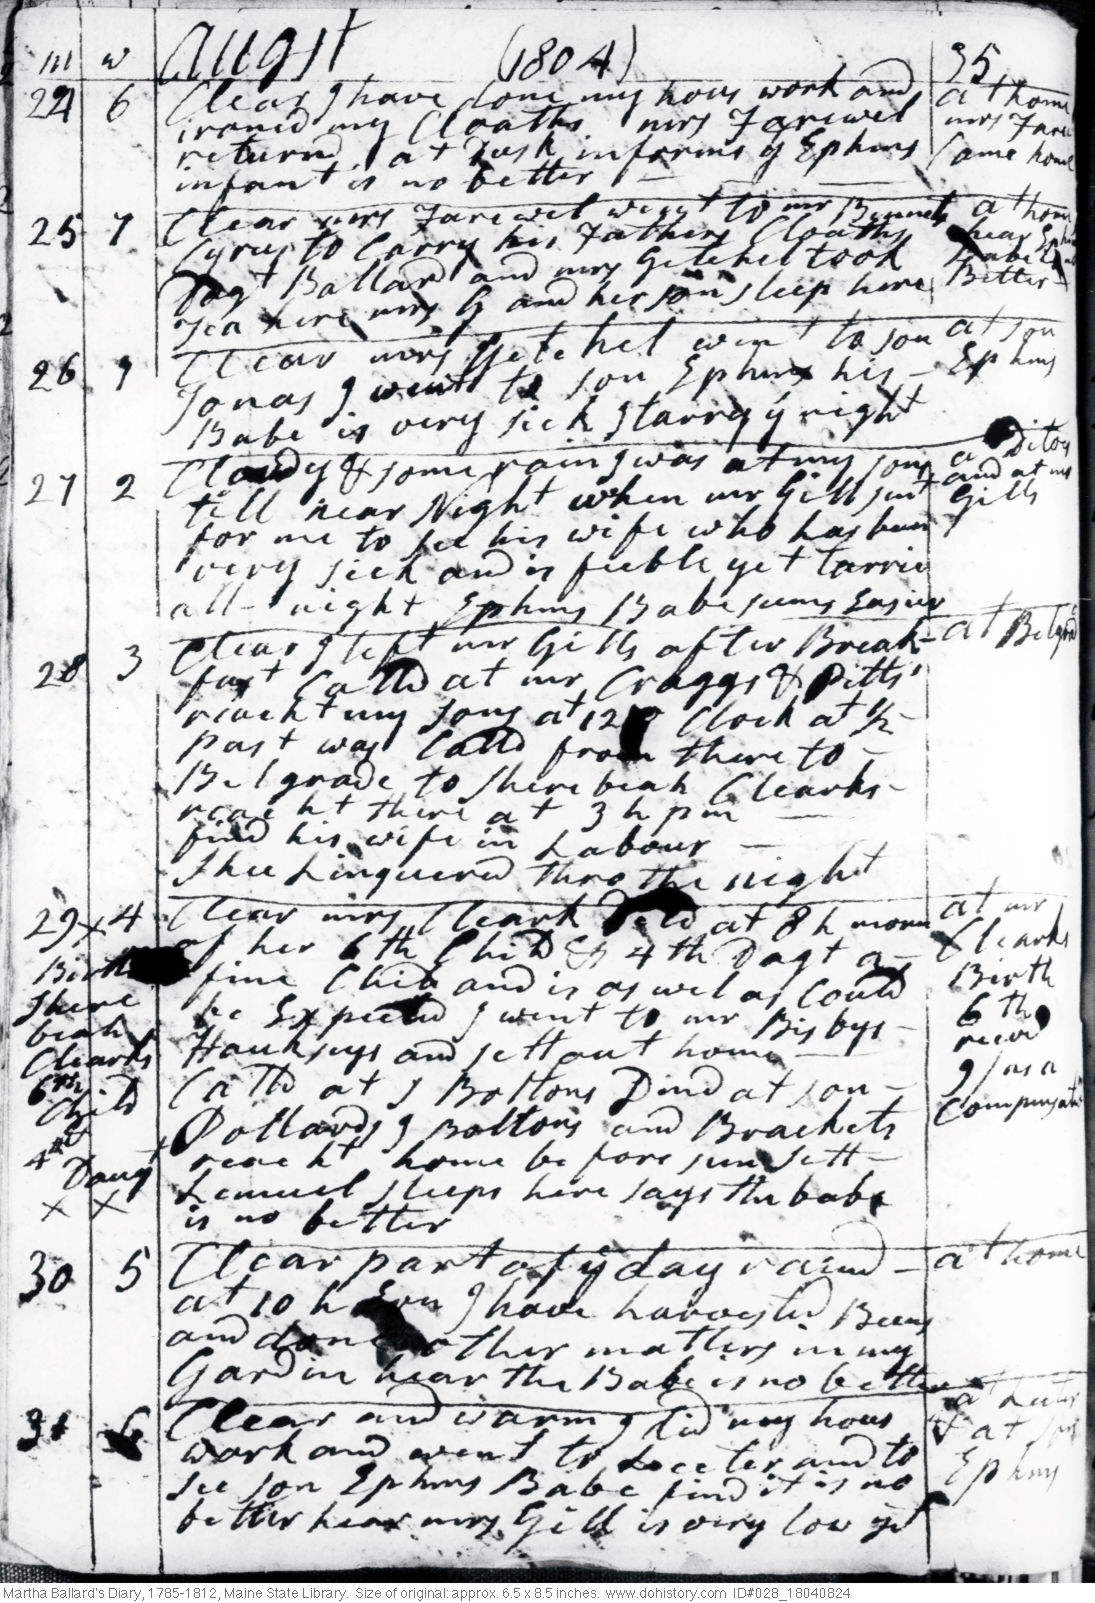 m w August (1804) 35
24 6 Clear I have done my hous work and
at home
ironed my Cloaths mrs Farewel
mrs Fare
returnd at Dusk informs y Ephms
Came home
infant is no better
25 7 Clear mrs Farewel went to mr
at home
Cyrus to Carry his Fathers Cloaths
hear
Dagt Ballard and mrs Getchel took
Babe
Better
Tea here mrs G and her son sleep here
26 1 Clear mrs Getchel went to son
at son
Jonas I went to son Ephms his
Ephms
Babe is very sick I tarry y night
27 2 Cloudy & some rain I was at my sons
a Ditoy
till near Night when mr Gill sent
and at mr
for me to see his wife who has been
Gills
very sick and is feeble yet tarrid
all night Ephms Babe seems Easier
28 3 Clear I left mr Gills after Break-
at Belgrad
fast Calld at mr Craggs & Pitts
reacht my sons at 12 Clock at ½
past was Calld from there to
Belgrade to Sherebeah Clearks
reacht there at 3 h pm
find his wife in Labour
Shee Linquered thro the night
29 x 4 Clear mrs Cleark Deld at 8 h morn
at mr
of her 6th Child & 4th Dagt a
Clearks
Birth
fine Child and is as wel as Could
Birth
Shere
be Expected I went to mr Bisbys
6th
beah
Hankseys and sett out home
receivd
Clearks
Calld at J Boltons Dind at son
9/ as a
6th
Child
Pollards J Boltons and Brackets
Compensatn
4th
Daugt
reacht home before sun sett
x x
Lemuel sleeps here says the babe
is no better
30 5 Clear part of y day raind
at home
at 10 h Evn I have harvested Beens
and done other matters in my
Gardin hear the Babe is no better
31 6 Clear and warm I did my hous
work and went to Lecter and to
& at son
see son Ephms Babe find it is no
Ephms
better hear mrs Gill is very low yet
Martha Ballard's Diary, 1785-1812, Maine State Library. Size of original: approx. 6.5 x 8.5 inches. www.dohistory.com ID#028_18040824